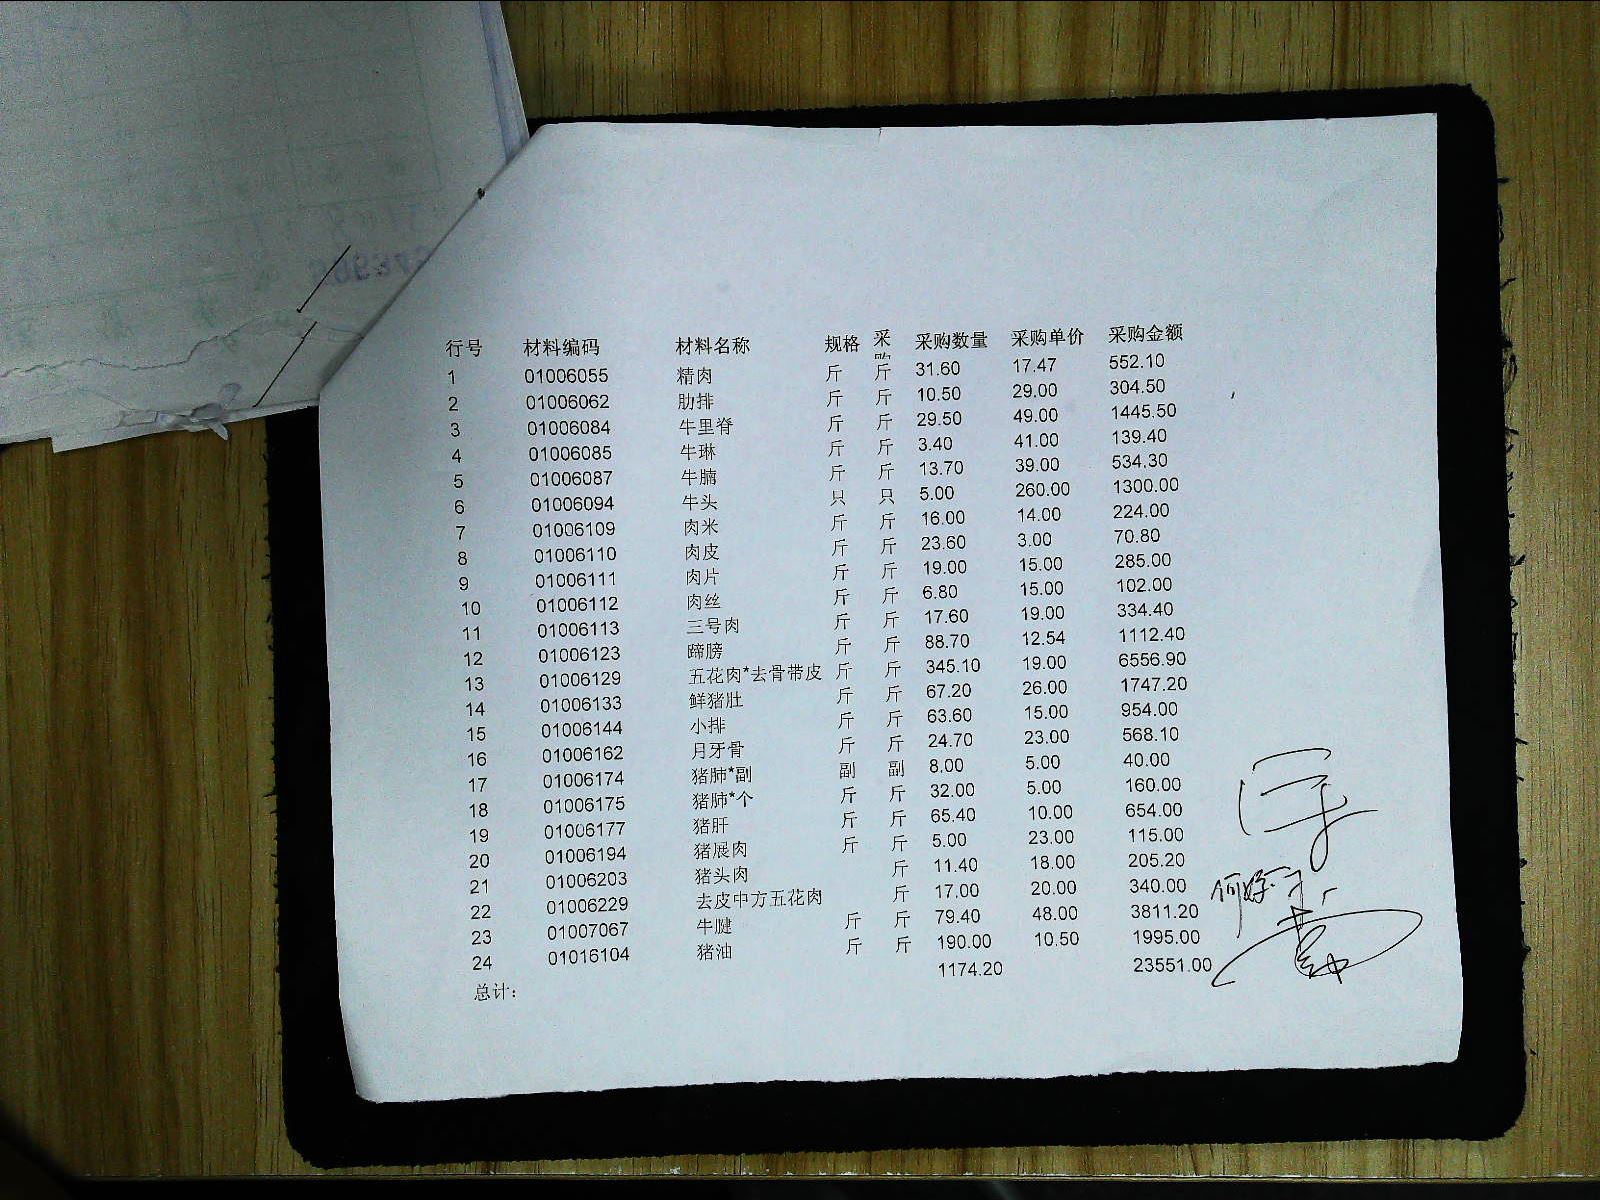 行号 材料编码 材料名称 规格 采购 采购数量 采购单价 采购金额
1 01006055 精肉 斤 斤 31.60 17.47 552.10
2 01006062 肋排 斤 斤 10.50 29.00 304.50
3 01006084 牛里脊 斤 斤 29.50 49.00 1445.50
4 01006085 牛琳 斤 斤 3.40 41.00 139.40
5 01006087 牛腩 斤 斤 13.70 39.00 534.30
6 01006094 牛头 只 只 5.00 260.00 1300.00
7 01006109 肉米 斤 斤 16.00 14.00 224.00
8 01006110 肉皮 斤 斤 23.60 3.00 70.80
9 01006111 肉片 斤 斤 19.00 15.00 285.00
10 01006112 肉丝 斤 斤 6.80 15.00 102.00
11 01006113 三号肉 斤 斤 17.60 19.00 334.40
12 01006123 蹄膀 斤 斤 88.70 12.54 1112.40
13 01006129 五花肉*去骨带皮 斤 斤 345.10 19.00 6556.90
14 01006133 鲜猪肚 斤 斤 67.20 26.00 1747.20
15 01006144 小排 斤 斤 63.60 15.00 954.00
16 01006162 月牙骨 斤 斤 24.70 23.00 568.10
17 01006174 猪肺*副 副 副 8.00 5.00 40.00
18 01006175 猪肺*个 斤 斤 32.00 5.00 160.00
19 01006177 猪肝 斤 斤 65.40 10.00 654.00
20 01006194 猪展肉 斤 斤 5.00 23.00 115.00
21 01006203 猪头肉 斤 11.40 18.00 205.20
22 01006229 去皮中方五花肉 斤 17.00 20.00 340.00
23 01007067 牛腱 斤 斤 79.40 48.00 3811.20
24 01016104 猪油 斤 斤 190.00 10.50 1995.00
总计： 1174.20 23551.00